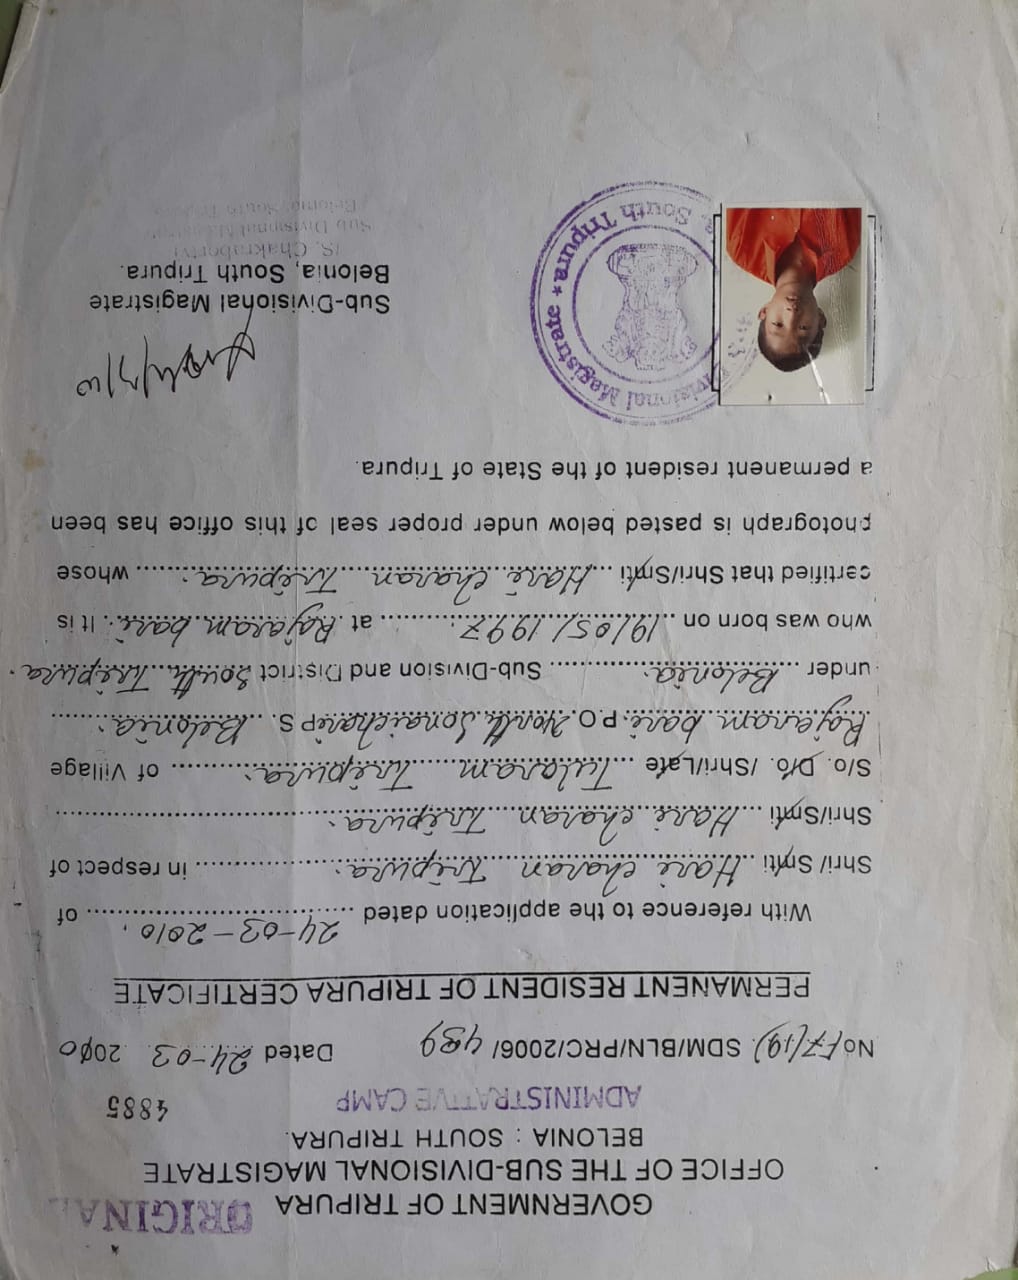 GOVERNMENT OF TRIPURA ORIGINAL
OFFICE OF THE SUB-DIVISIONAL MAGISTRATE
BELONIA : SOUTH TRIPURA.
ADMINISTRATIVE CAMP 4885
No F7(19) SDM/BLN/PRC/2006/ 489 Dated 24-03 2010
PERMANENT RESIDENT OF TRIPURA CERTIFICATE
With reference to the application dated 24-03-2010, of
Shri/ Smti Hari charan Tripura. in respect of
Shri/Smti Hari charan Tripura.
S/o. D/o. /Shri/Late Tularam Tripura. of Village
Rajaram bari. P.O. North Sonaichari P S. Belonia.
under Belonia. Sub-Division and District South Tripura.
who was born on 19/05/1997. at Rajaram bari. It is
certified that Shri/Smti Hari charan Tripura. whose
photograph is pasted below under proper seal of this office has been
a permanent resident of the State of Tripura.
Divisional Magistrate * South Tripura
Sub-Divisional Magistrate
Belonia, South Tripura.
(S. Chakraborty)
Sub Divisional
Belonia South Tripura